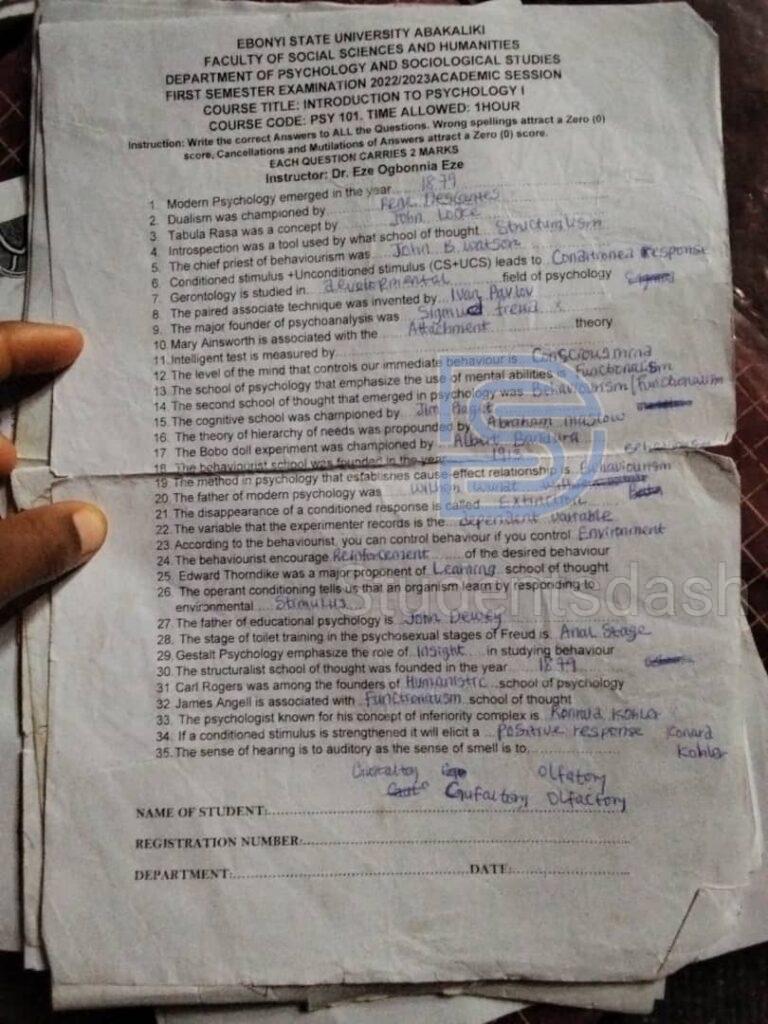 EBONYI STATE UNIVERSITY ABAKALIKI
FACULTY OF SOCIAL SCIENCES AND HUMANITIES
DEPARTMENT OF PSYCHOLOGY AND SOCIOLOGICAL STUDIES
FIRST SEMESTER EXAMINATION 2022/2023ACADEMIC SESSION
COURSE TITLE: INTRODUCTION TO PSYCHOLOGY I
COURSE CODE: PSY 101. TIME ALLOWED: 1HOUR
Instruction: Write the correct Answers to ALL the Questions. Wrong spellings attract a Zero (0)
score, Cancellations and Mutilations of Answers attract a Zero (0) score.
EACH QUESTION CARRIES 2 MARKS
Instructor: Dr. Eze Ogbonnia Eze
1. Modern Psychology emerged in the year 1879
2. Dualism was championed by Rene Descartes
3. Tabula Rasa was a concept by John Locke
4. Introspection was a tool used by what school of thought Structuralism
5. The chief priest of behaviourism was John B. Watson
6. Conditioned stimulus +Unconditioned stimulus (CS+UCS) leads to Conditioned response
7. Gerontology is studied in developmental field of psychology
8. The paired associate technique was invented by Ivan Pavlov
9. The major founder of psychoanalysis was Sigmud freud
10. Mary Ainsworth is associated with the Attachment theory
11. Intelligent test is measured by
12. The level of the mind that controls our immediate behaviour is Conscious mind
13. The school of psychology that emphasize the use of mental abilities is Functionalism
14. The second school of thought that emerged in psychology was Behaviourism/Functionalism
15. The cognitive school was championed by Jim Piaget
16. The theory of hierarchy of needs was propounded by Abraham maslow
17. The Bobo doll experiment was championed by Albert Bandura
18. The behaviourist school was founded in the year 1913
19. The method in psychology that establishes cause-effect relationship is Behaviourism
20. The father of modern psychology was Wilhem Wundt
21. The disappearance of a conditioned response is called Extinction
22. The variable that the experimenter records is the dependent variable
23. According to the behaviourist, you can control behaviour if you control Environment
24. The behaviourist encourage Reinforcement of the desired behaviour
25. Edward Thorndike was a major proponent of Learning school of thought
26. The operant conditioning tells us that an organism learn by responding to
environmental Stimulus
27. The father of educational psychology is John Dewey
28. The stage of toilet training in the psychosexual stages of Freud is Anal Stage
29. Gestalt Psychology emphasize the role of Insight in studying behaviour
30. The structuralist school of thought was founded in the year 1879
31. Carl Rogers was among the founders of Humanistic school of psychology
32. James Angell is associated with Functionalism school of thought
33. The psychologist known for his concept of inferiority complex is Konrald Kohler
34. If a conditioned stimulus is strengthened it will elicit a Positive response Konard
35. The sense of hearing is to auditory as the sense of smell is to Kohler
Olfatory
Gufaltory Olfactory
NAME OF STUDENT:
REGISTRATION NUMBER:
DEPARTMENT: DATE:
Studentsdash